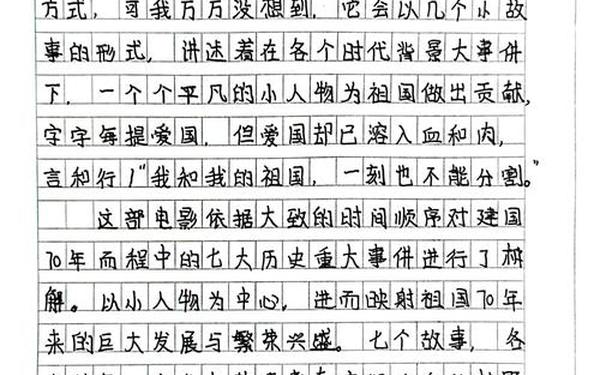 方式，可我万万没想到，它会以几个小故
事的形式，讲述着在各个时代背景大事件
下，一个个平凡的小人物为祖国做出贡献，
字字每提爱国，但爱国却已溶入血和内，
言和行！"我和我的祖国，一刻也不能分割。"
这部电影依据大致的时间顺序对建国
70年而程中的七大历史重大事件进行了
解。以小人物为中心，进而映射祖国70年
来的巨大发展与繁荣兴盛。七个故事，各